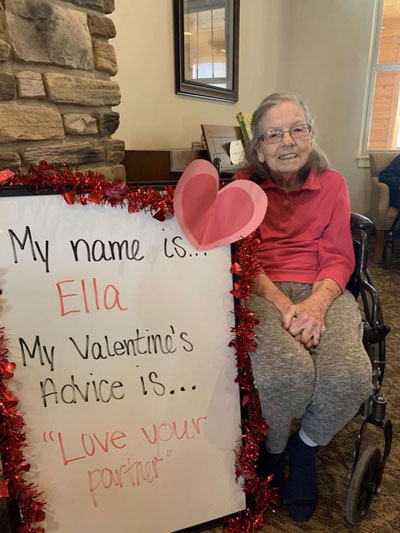 My name is...
Ella
My Valentine's
Advice is...
"Love your
partner"